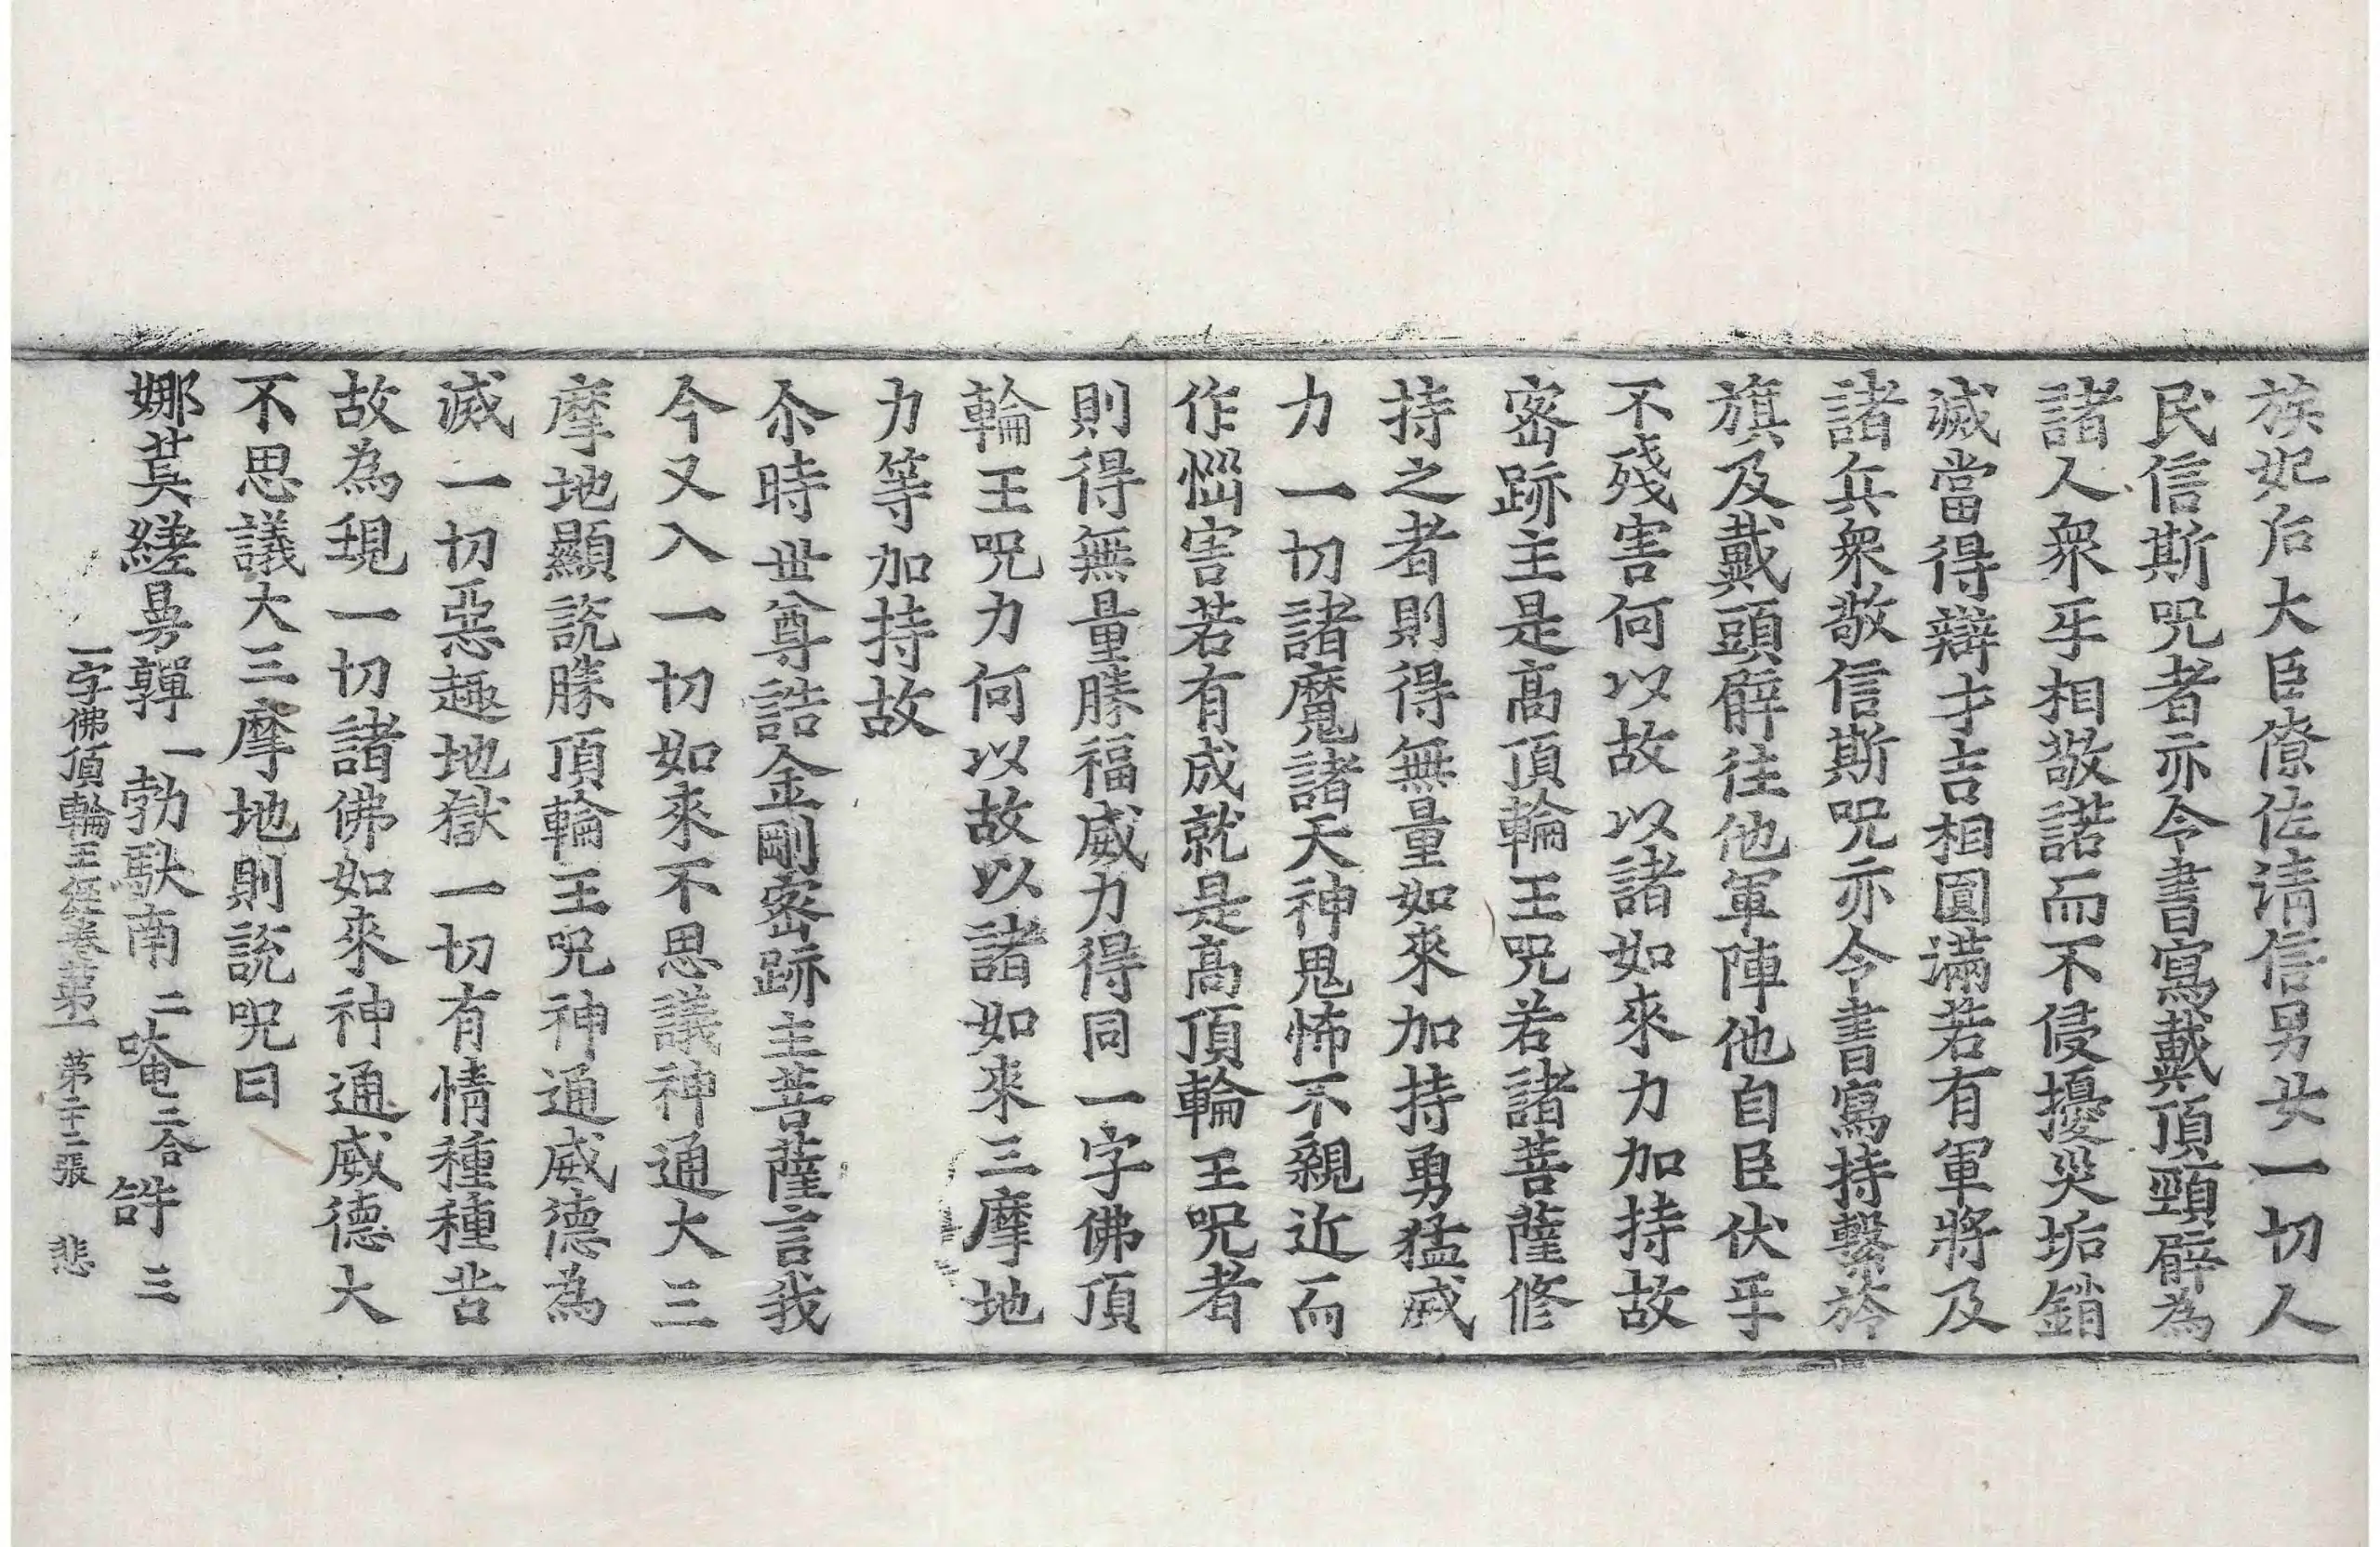 族妃后大臣僚佐清信男女一切人
民信斯呪者亦令書寫戴頂頸臂為
諸人衆乎相敬諾而不侵擾灾垢銷
滅當得辯才吉相圓滿若有軍將及
諸兵衆敬信斯呪亦令書寫持繫於
旗及戴頭臂往他軍陣他自臣伏乎
不殘害何以故以諸如來力加持故
密跡主是高頂輪王呪若諸菩薩修
持之者則得無量如來加持勇猛威
力一切諸魔諸天神鬼怖不親近而
作惱害若有成就是高頂輪王呪者
則得無量勝福威力得同一字佛頂
輪王呪力何以故以諸如來三摩地
力等加持故
尒時世尊誥金剛密跡主菩薩言我
今又入一切如來不思議神通大三
摩地顯說勝頂輪王呪神通威德為
滅一切惡趣地獄一切有情種種苦
故為現一切諸佛如來神通威德大
不思議大三摩地則說呪曰
娜莫縒曼嚲一勃馱南二唵二合𤙖三
一字佛頂輪王經卷第一 第二十二張 悲